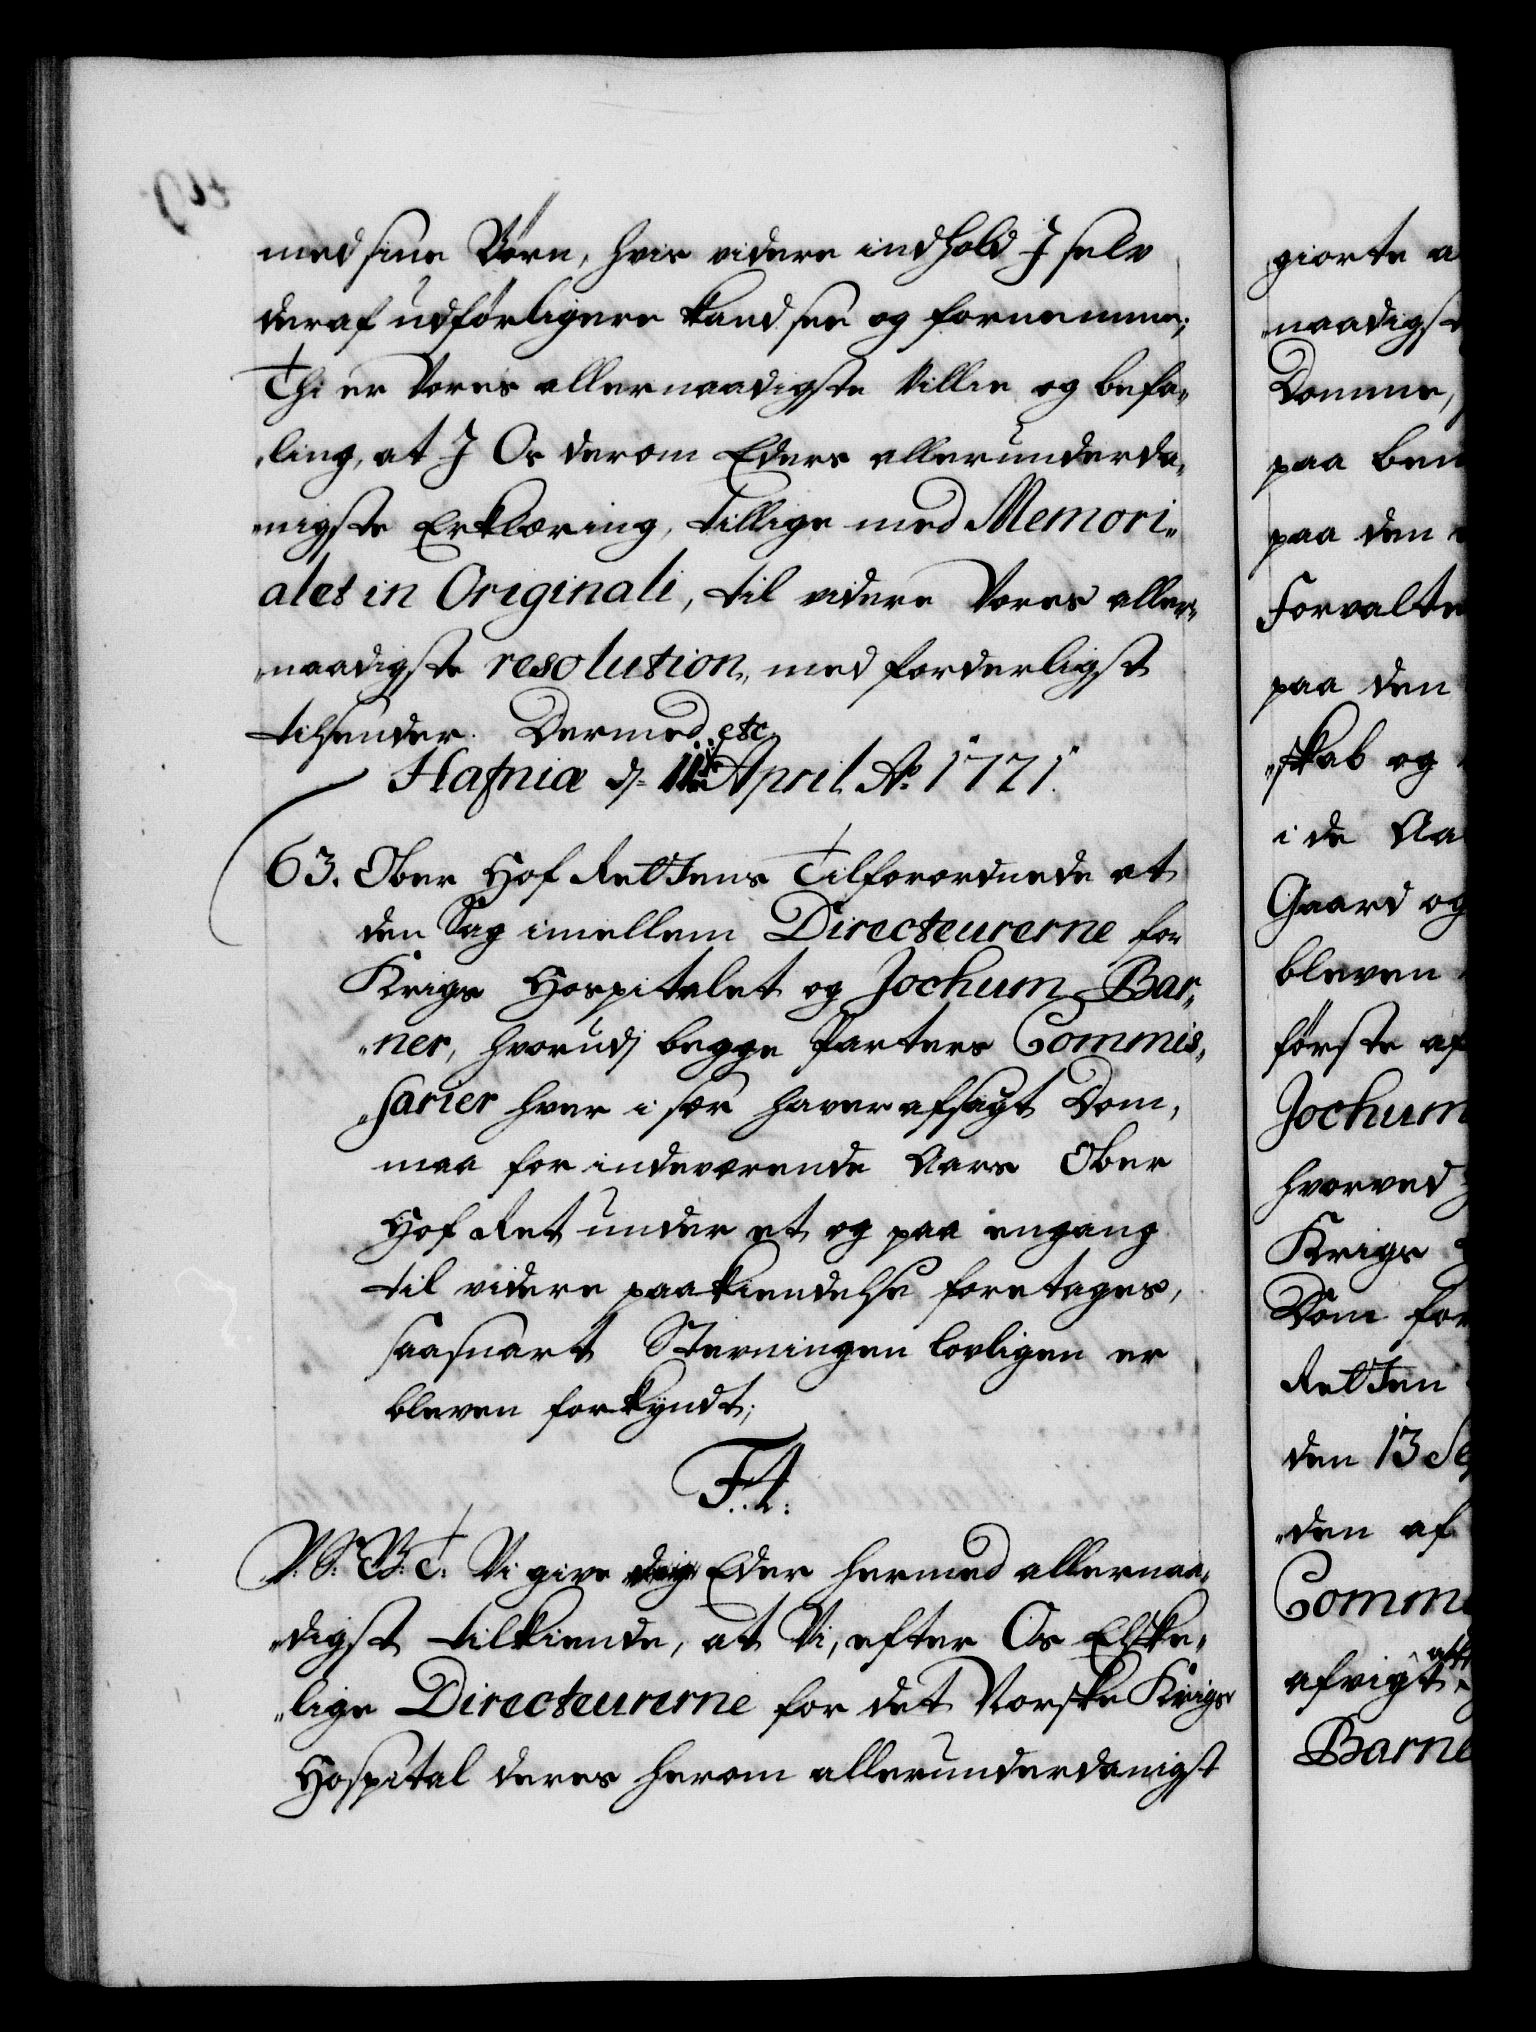 med sine Børn, hvis videre indhold I selv
deraf udførligere kand see og fornemme;
Thi er Vores allernaadigste Villie og befa-
ling, at I Os derom Eders allerunderda-
nigste Erklæring, tillige med Memori-
alet in Originali, til videre Vores aller-
naadigste resolution, med forderligst
tilsender. Dermed etc.
Hafniæ d. 11te April Ao. 1721.
63. Ober Hof Rettens Tilforordnede at
den Sag imellem Directeurerne for
Krigs Hospitalet og Jochum Bar-
ner, hvorudj begge Parters Commis-
sarier hver i sær haver afsagt Dom,
maa for indeværende Aars Ober
Hof Ret under et og paa engang
til videre paakiendelse foretages,
saasnart Stevningen lovligen er
bleven forkyndt;
F. 4.
V. S. G. B. T. Vi give Eder hermed allernaa-
digst tilkiende, at Vi, efter Os Elske-
lige Directeurerne for det Norske Krigs
Hospital deres herom allerunderdanigst
giorte a
naadigst
Domme,
paa ben
paa den
Forvalte
paa den
skab og
i de Aa
Gaard og
bleven
første af
Jochum
hvorved
Krigs
Dom for
Retten
den 13 Se
den af
Comm
afvigt
Barne